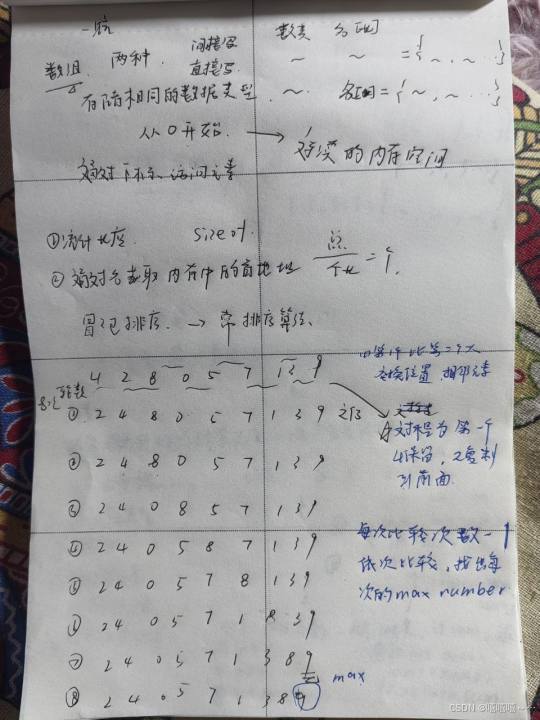 一. 数组
数组 两种. 间接写 数据类 名[ ]
直接写 ~ ~ = { ~ , ~ ... }
存储相同的数据类型. ~. 名[ ] = { ~ , ~ ... }
从0开始. → 连续的内存空间
通过下标, 访问元素
① 统计长度 sizeof. 总/个长 = 个.
② 通过名 获取 内存中的首地址
冒泡排序. → 常 排序算法.
4 2 8 0 5 7 1 3 9
① 2 4 8 0 5 7 1 3 9
② 2 4 8 0 5 7 1 3 9
③ 2 4 0 8 5 7 1 3 9
④ 2 4 0 5 8 7 1 3 9
⑤ 2 4 0 5 7 8 1 3 9
⑥ 2 4 0 5 7 1 8 3 9
⑦ 2 4 0 5 7 1 3 8 9
⑧ 2 4 0 5 7 1 3 8 9
max
(1) 第一个比第二个大
交换位置, 相邻元素
过程为 第一个
4保留, 2复制
到前面
每次比较次数-1
依次比较, 找出每
次的max number
CSDN